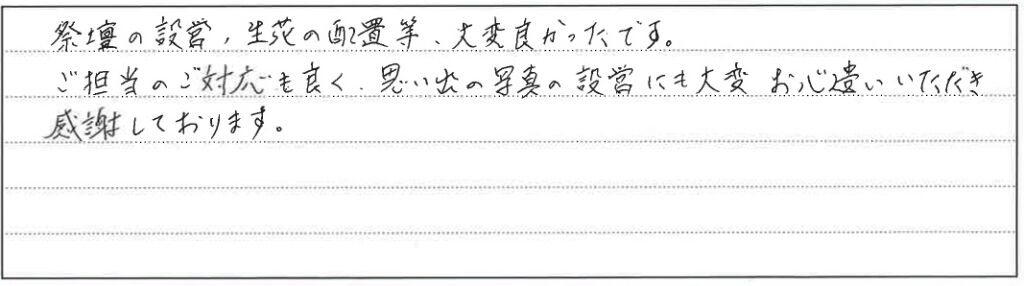 祭壇の設営，生花の配置等、大変良かったです。
ご担当のご対応も良く、思い出の写真の設営にも大変お心遣いいただき
感謝しております。